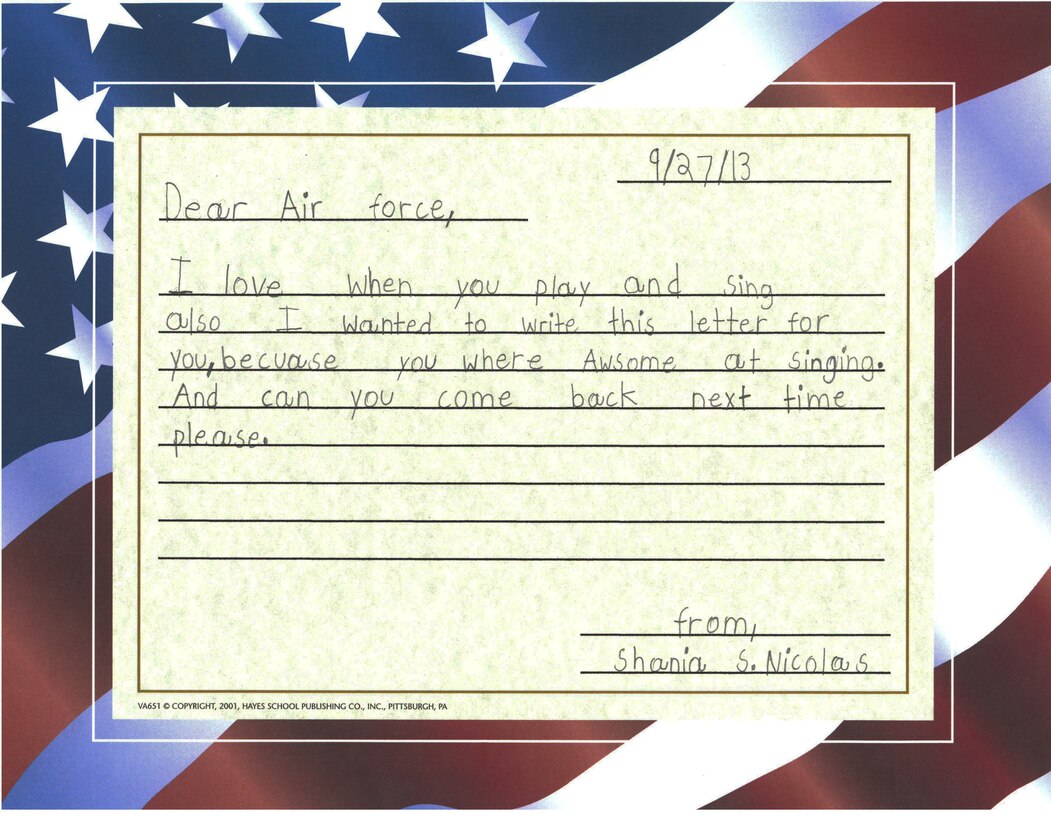 9/27/13
Dear Air force,
I love when you play and sing
also I wanted to write this letter for
you, becuase you where Awsome at singing.
And can you come back next time
please.
from,
Shania S. Nicolas
VA651 © COPYRIGHT, 2001, HAYES SCHOOL PUBLISHING CO., INC., PITTSBURGH, PA